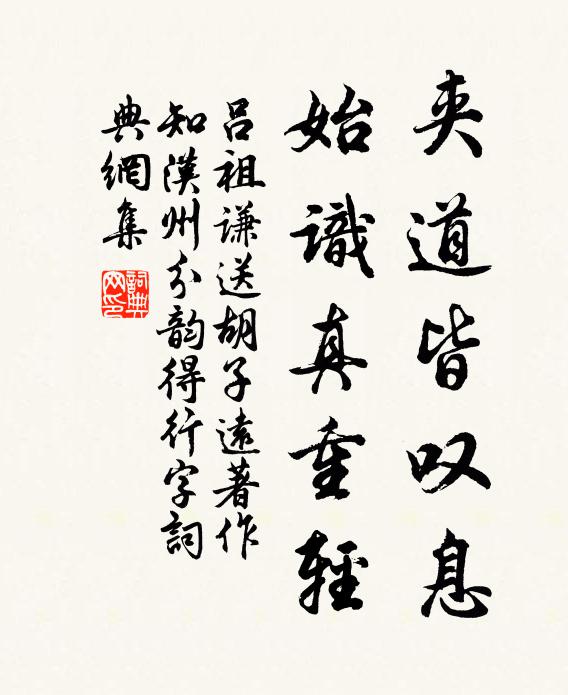 夹道皆叹息
始識真重輕
呂祖谦送胡子遠著作
知漢州分韵得行字詞
典網集
詞典網印